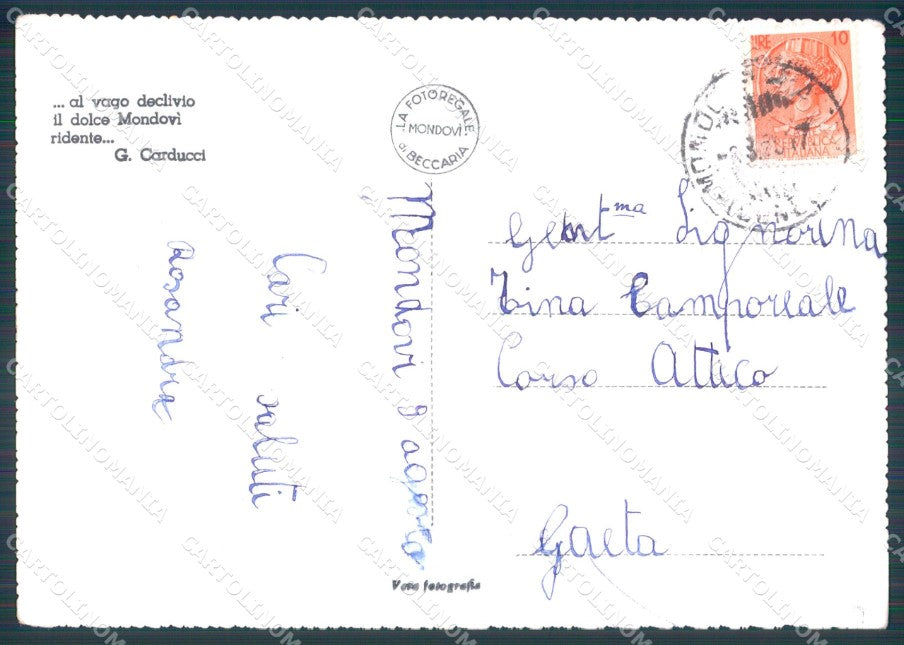 ... al vago declivio
il dolce Mondovì
ridente...
G. Carducci
LA FOTOREGALE
MONDOVÌ
di BECCARIA
10
Mondovì 8 agosto
Cari saluti
Rosandra
Gent.ma Signorina
Tina Camporeale
Corso Attico
Gaeta
Vera fotografia
CARTOLINOMANIA